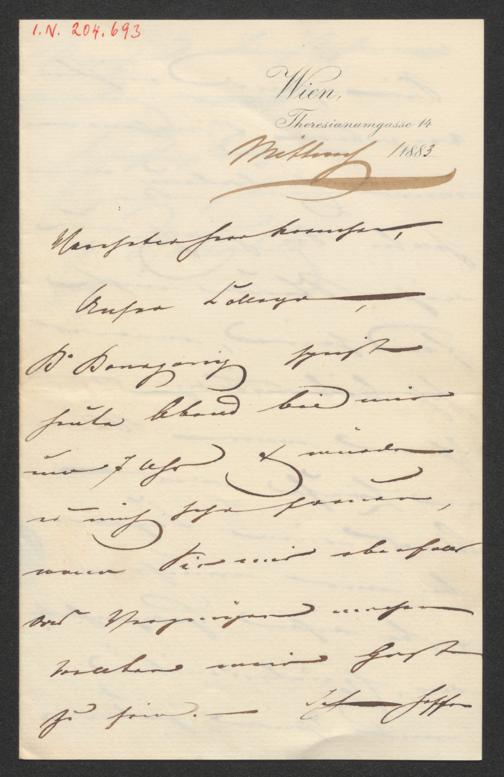 I.N. 204.693
Wien,
Theresianumgasse 14
Mittwoch /1883
Verehrter Herr
Unser College,
Dr speist
heute Abend bei mir
um 7 Uhr & würde
es mich sehr freuen,
wenn Sie mir ebenfalls
das Vergnügen machen
wollten mein Gast
zu sein. — Ich hoffe